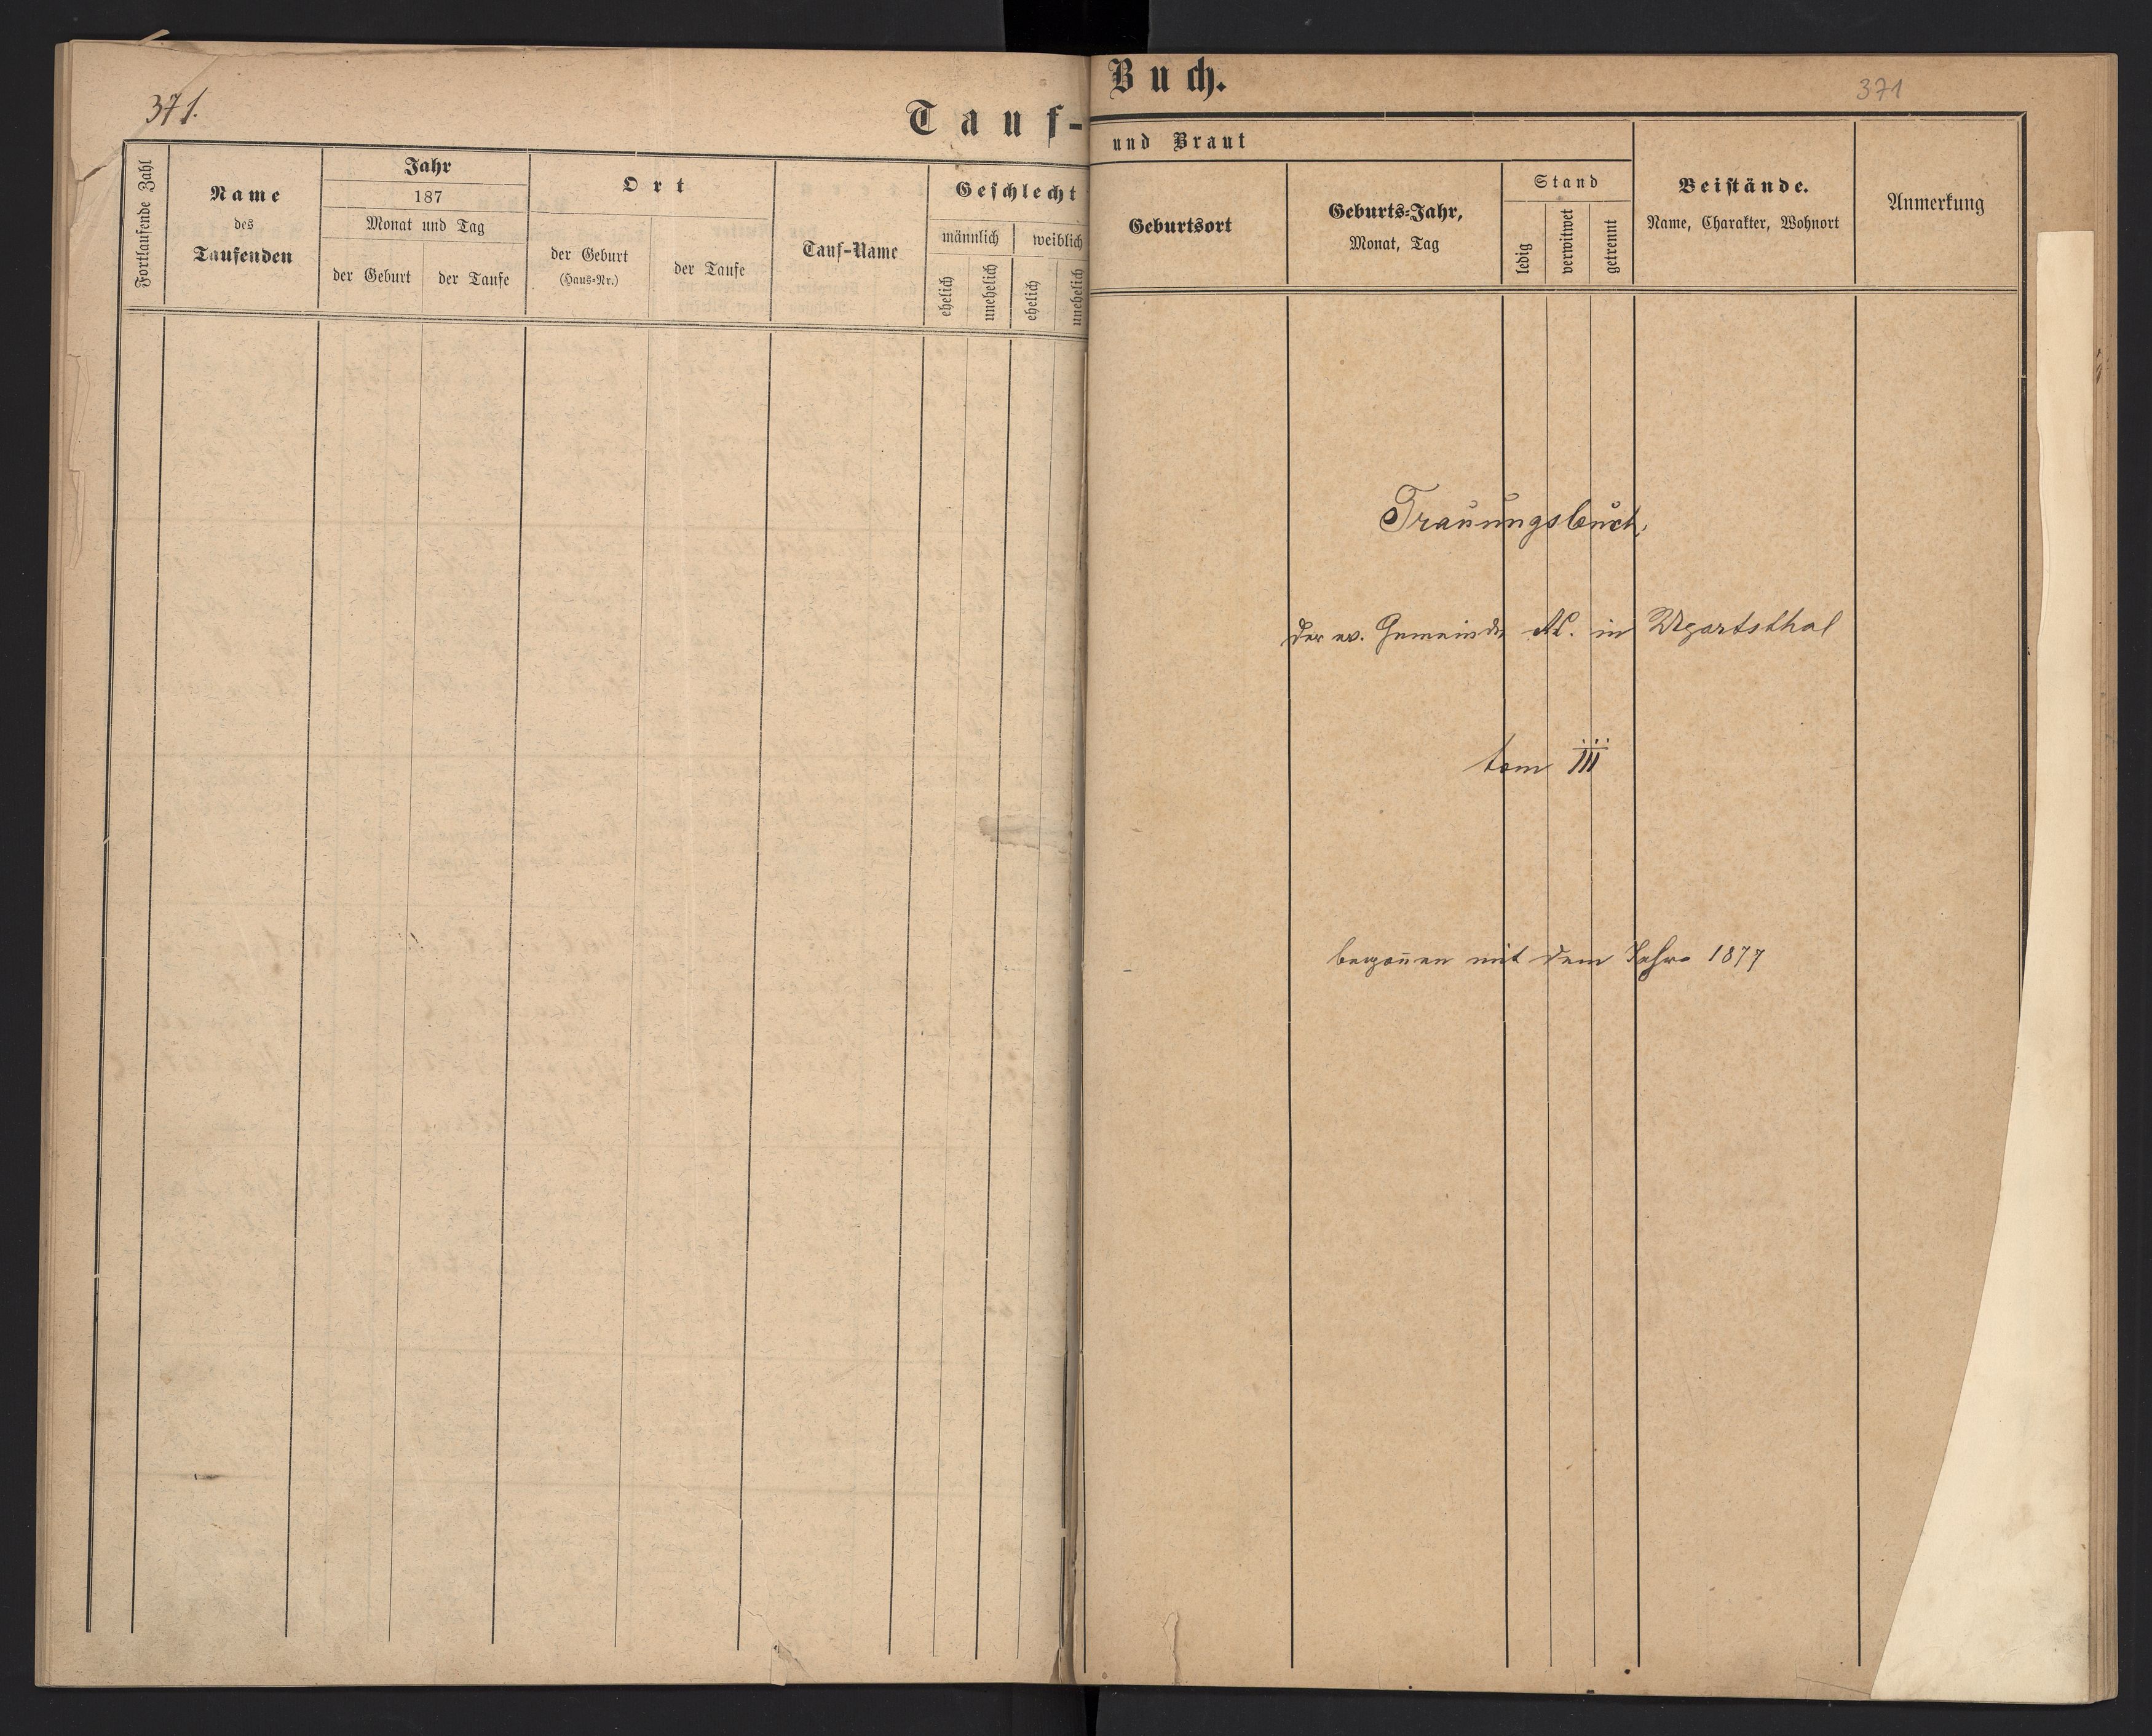 371.
Tauf-
Fortlaufende Zahl
Name
des
Taufenden
Jahr
187
Monat und Tag
der Geburt
der Taufe
Ort
der Geburt
(Haus-Nr.)
der Taufe
Tauf-Name
Geschlecht
männlich
weiblich
ehelich
unehelich
ehelich
unehelich
Buch.
371
und Braut
Geburtsort
Geburts-Jahr,
Monat, Tag
Stand
ledig
verwitwet
getrennt
Beistände.
Name, Charakter, Wohnort
Anmerkung
Trauungsbuch
der ev. Gemeinde AC. in Ugartsthal
tom III
begonnen mit dem Jahre 1877